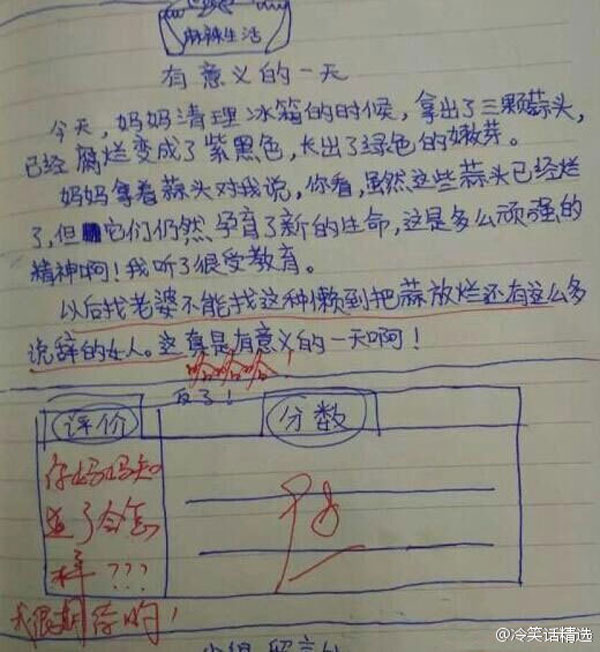 麻辣生活
有意义的一天
今天，妈妈清理冰箱的时候，拿出了三颗蒜头，
已经腐烂变成了紫黑色，长出了绿色的嫩芽。
妈妈拿着蒜头对我说，你看，虽然这些蒜头已经烂
了，但它们仍然孕育了新的生命，这是多么顽强的
精神啊！我听了很受教育。
以后找老婆不能找这种懒到把蒜放烂还有这么多
说辞的女人。这真是有意义的一天啊！
哈哈哈！
反了！
评价
分数
你妈妈知
道了会怎
样？？？
我很期待哟！
@冷笑话精选